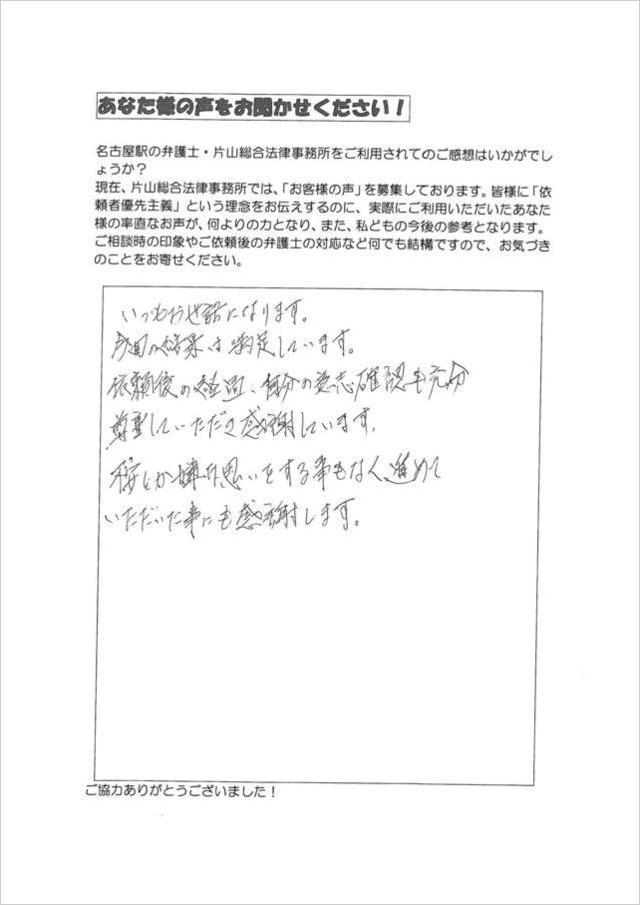 あなた様の声をお聞かせください！
名古屋駅の弁護士・片山総合法律事務所をご利用されてのご感想はいかがでし
ょうか？
現在、片山総合法律事務所では、「お客様の声」を募集しております。皆様に「依
頼者優先主義」という理念をお伝えするのに、実際にご利用いただいたあなた
様の率直なお声が、何よりの力となり、また、私どもの今後の参考となります。
ご相談時の印象やご依頼後の弁護士の対応など何でも結構ですので、お気づき
のことをお寄せください。
いつもお世話になります。
今回の結果は満足しています。
依頼後の経過、自分の意志確認も充分
尊重していただき感謝しています。
嫌な思いをする事もなく進めて
いただいた事にも感謝します。
ご協力ありがとうございました！